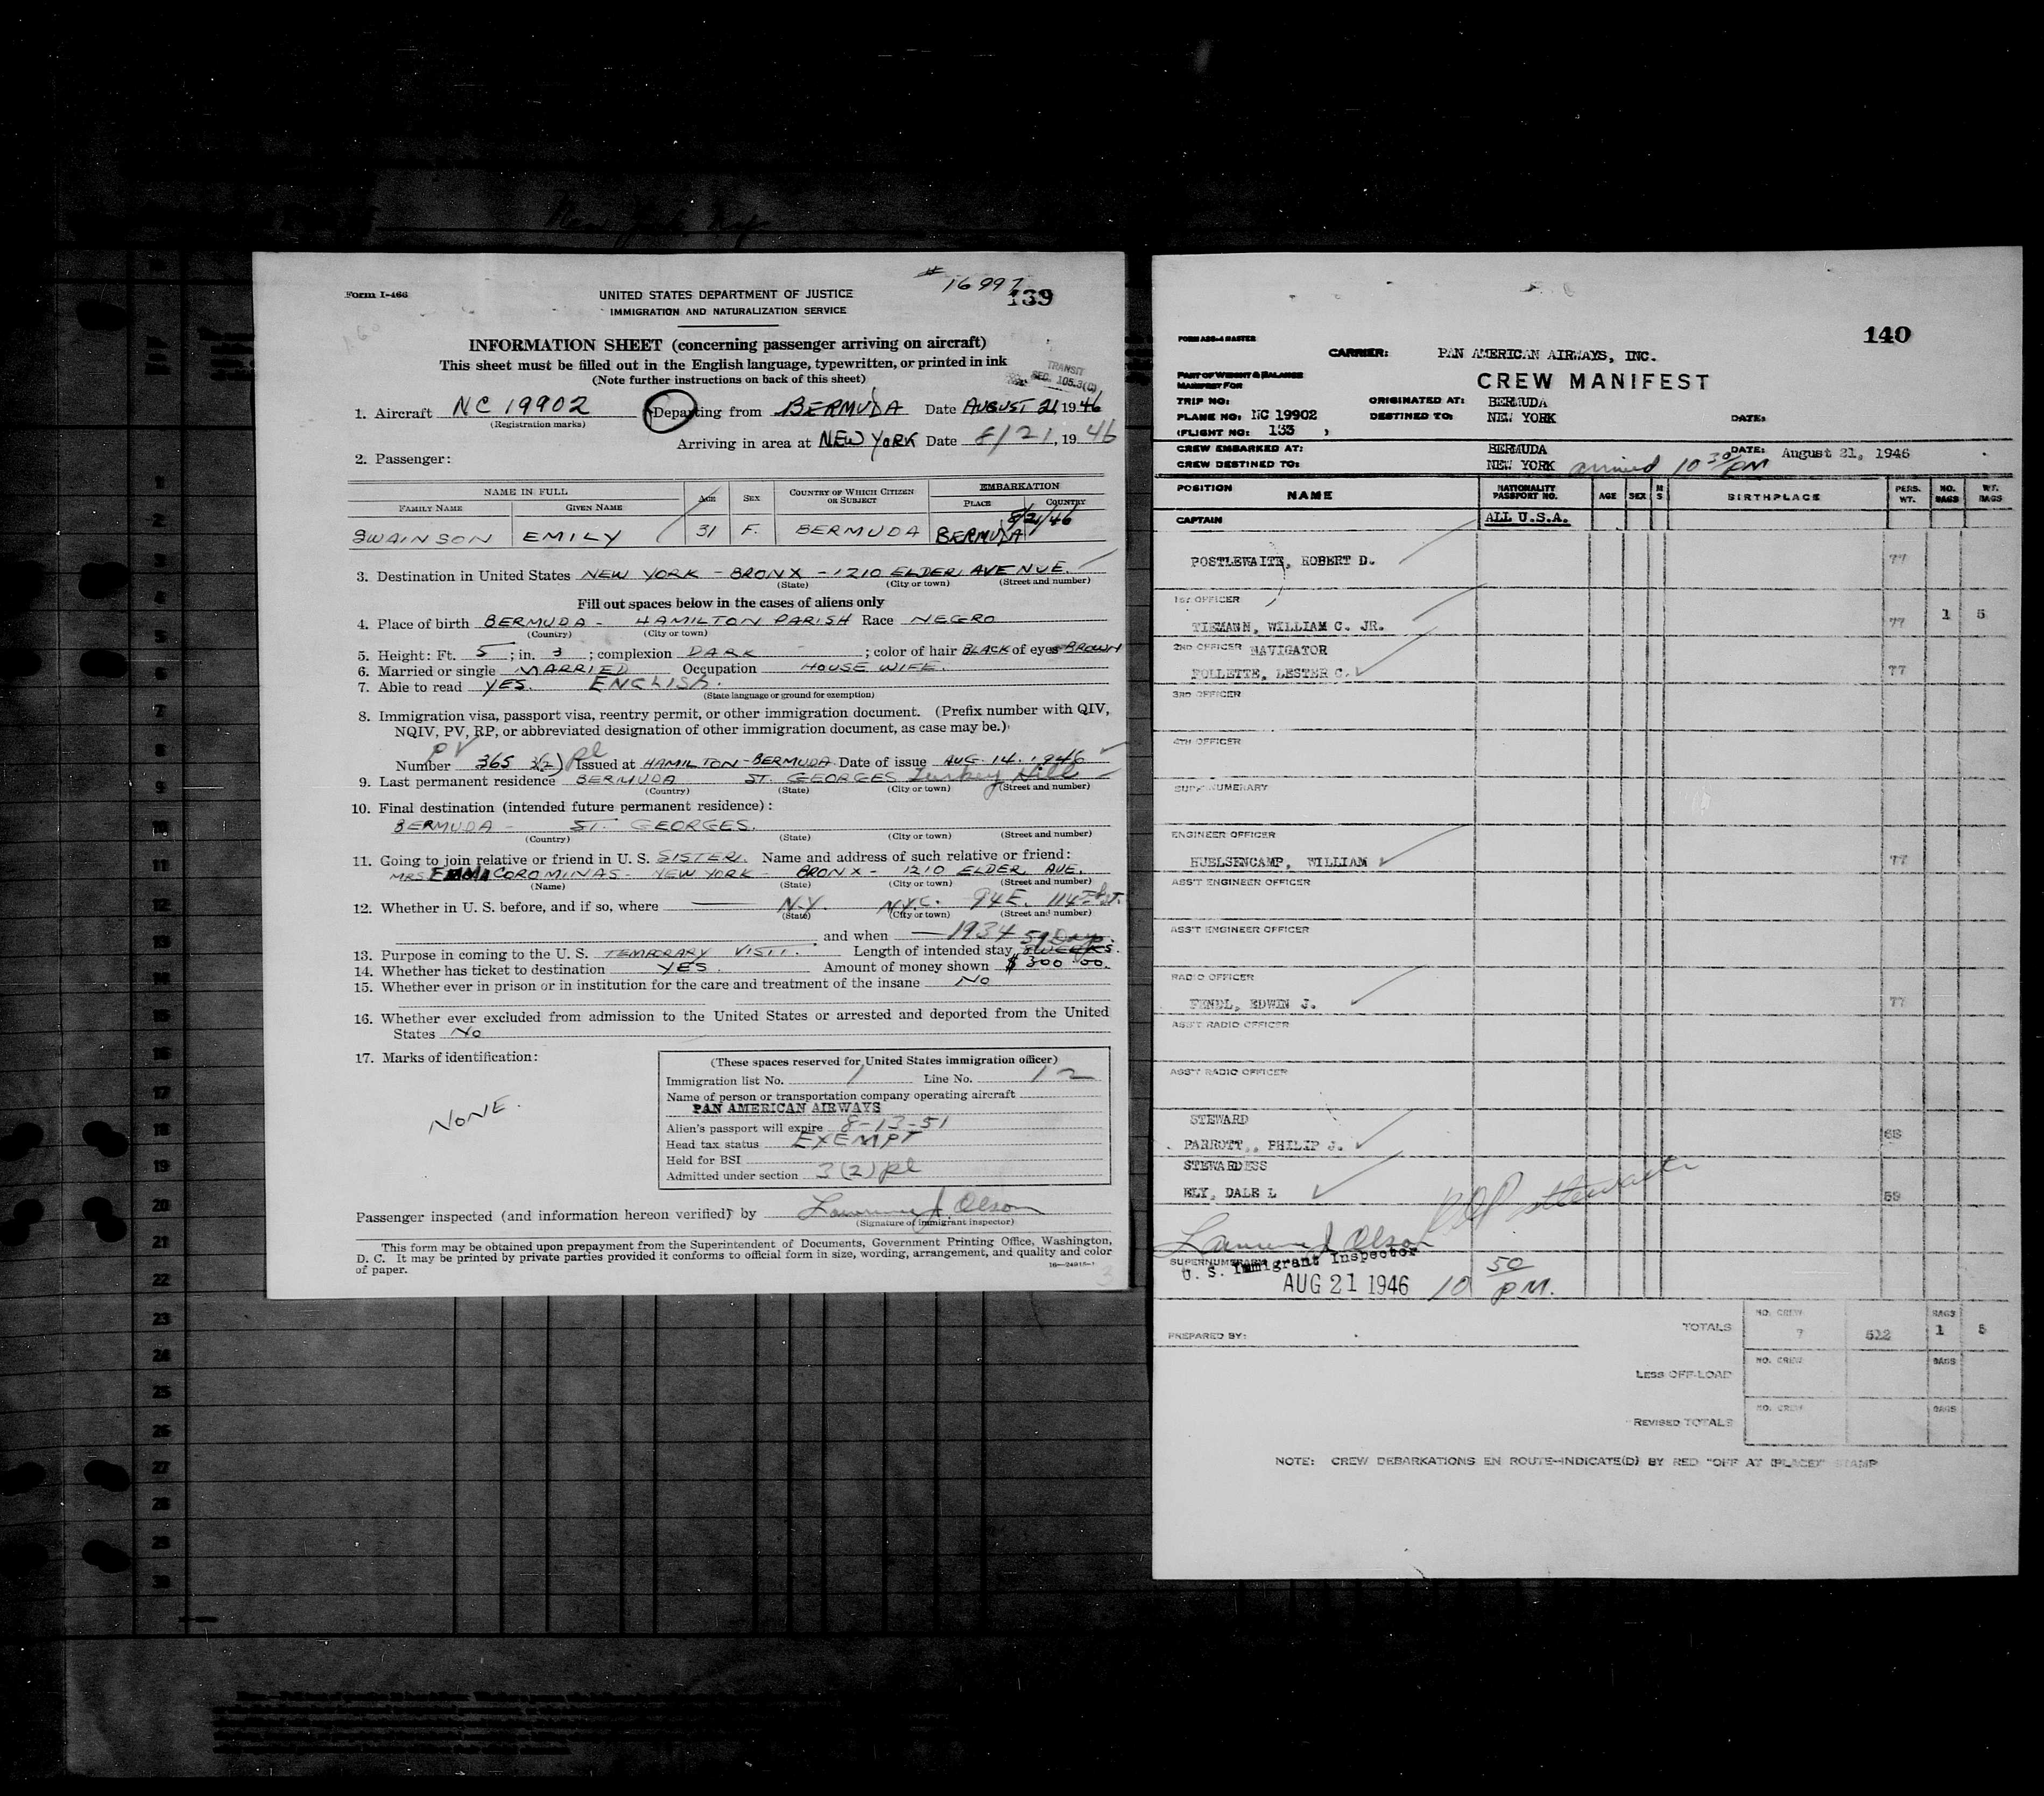 New York
# 16997
139
Form I-466
UNITED STATES DEPARTMENT OF JUSTICE
IMMIGRATION AND NATURALIZATION SERVICE
INFORMATION SHEET (concerning passenger arriving on aircraft)
This sheet must be filled out in the English language, typewritten, or printed in ink
(Note further instructions on back of this sheet)
TRANSIT
SEC. 105.3(C)
1. Aircraft NC 19902 Departing from BERMUDA Date AUGUST 21 1946
(Registration marks)
Arriving in area at NEW YORK Date 8/21, 1946
2. Passenger:
NAME IN FULL AGE SEX COUNTRY OF WHICH CITIZEN OR SUBJECT EMBARKATION
FAMILY NAME GIVEN NAME PLACE COUNTRY
8/21/46
SWAINSON EMILY 31 F. BERMUDA BERMUDA
3. Destination in United States NEW YORK - BRONX - 1210 ELDER AVENUE.
(State) (City or town) (Street and number)
Fill out spaces below in the cases of aliens only
4. Place of birth BERMUDA - HAMILTON PARISH Race NEGRO
(Country) (City or town)
5. Height: Ft. 5 ; in. 3 ; complexion DARK ; color of hair BLACK of eyes BROWN
6. Married or single MARRIED Occupation HOUSE WIFE.
7. Able to read YES. ENGLISH.
(State language or ground for exemption)
8. Immigration visa, passport visa, reentry permit, or other immigration document. (Prefix number with QIV,
NQIV, PV, RP, or abbreviated designation of other immigration document, as case may be.)
PV
Number 365 3(2) Pl Issued at HAMILTON-BERMUDA Date of issue AUG. 14. 1946
9. Last permanent residence BERMUDA ST. GEORGES Turkey Hill
(Country) (State) (City or town) (Street and number)
10. Final destination (intended future permanent residence):
BERMUDA - ST. GEORGES.
(Country) (State) (City or town) (Street and number)
11. Going to join relative or friend in U. S. SISTER. Name and address of such relative or friend:
MRS EMMA COROMINAS - NEW YORK - BRONX - 1210 ELDER AVE.
(Name) (State) (City or town) (Street and number)
12. Whether in U. S. before, and if so, where N.Y. N.Y.C. 94 E. 114th St.
(State) (City or town) (Street and number)
and when 1934
59 Days
13. Purpose in coming to the U. S. TEMPORARY VISIT. Length of intended stay 8 WEEKS.
14. Whether has ticket to destination YES. Amount of money shown $ 300.00.
15. Whether ever in prison or in institution for the care and treatment of the insane NO
16. Whether ever excluded from admission to the United States or arrested and deported from the United
States NO
17. Marks of identification:
NONE.
(These spaces reserved for United States immigration officer)
Immigration list No. 1 Line No. 12
Name of person or transportation company operating aircraft
PAN AMERICAN AIRWAYS
Alien's passport will expire 8-13-51
Head tax status EXEMPT
Held for BSI
Admitted under section 3(2) Pl
Passenger inspected (and information hereon verified) by Lawrence J. Olson
(Signature of immigrant inspector)
This form may be obtained upon prepayment from the Superintendent of Documents, Government Printing Office, Washington,
D. C. It may be printed by private parties provided it conforms to official form in size, wording, arrangement, and quality and color
of paper.
16—24915-1
3
140
CARRIER: PAN AMERICAN AIRWAYS, INC.
PART OF WEIGHT & BALANCE
MANIFEST FOR
CREW MANIFEST
TRIP NO: ORIGINATED AT: BERMUDA
PLANE NO: NC 19902 DESTINED TO: NEW YORK DATE:
(FLIGHT NO: 133 )
CREW EMBARKED AT: BERMUDA DATE: August 21, 1946
CREW DESTINED TO: NEW YORK arrived 10 30 PM
POSITION NAME NATIONALITY PASSPORT NO. AGE SEX M S BIRTHPLACE PERS. WT. NO. BAGS WT. BAGS
CAPTAIN ALL U.S.A.
POSTLEWAITE, ROBERT D. 77
1ST OFFICER
TIEMANN, WILLIAM C. JR. 77 1 5
2ND OFFICER NAVIGATOR
FOLLETTE, LESTER C. 77
3RD OFFICER
4TH OFFICER
SUPERNUMERARY
ENGINEER OFFICER
HUELSENCAMP, WILLIAM 77
ASS'T ENGINEER OFFICER
ASS'T ENGINEER OFFICER
RADIO OFFICER
FENDL, EDWIN J. 77
ASS'T RADIO OFFICER
ASS'T RADIO OFFICER
STEWARD
PARROTT, PHILIP J. 68
STEWARDESS
ELY, DALE L 59
RD Postlewaite
Lawrence J Olson
SUPERNUMERARY
U. S. Immigrant Inspector
AUG 21 1946 10 50 PM.
PREPARED BY:
TOTALS NO. CREW 7 512 BAGS 1 5
LESS OFF-LOAD NO. CREW BAGS
REVISED TOTALS NO. CREW BAGS
NOTE: CREW DEBARKATIONS EN ROUTE—INDICATE(D) BY RED "OFF AT (PLACE)" STAMP
1
2
3
4
5
6
7
8
9
10
11
12
13
14
15
16
17
18
19
20
21
22
23
24
25
26
27
28
29
30